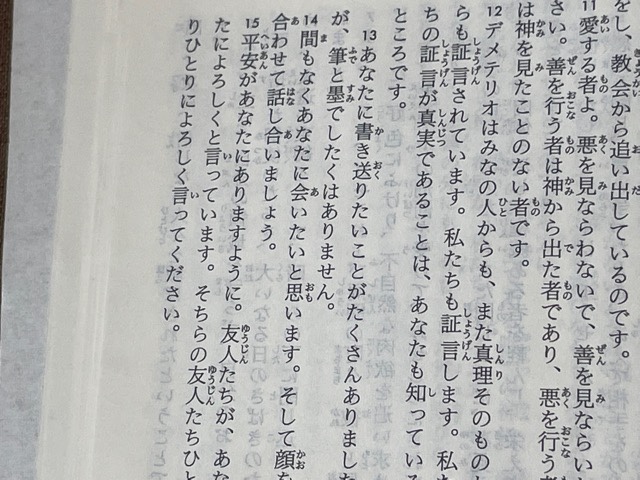 をし、教会から追い出しているのです。
11愛する者よ。悪を見ならわないで、善を見ならい
さい。善を行う者は神から出た者であり、悪を行う者
は神を見たことのない者です。
12デメテリオはみなの人からも、また真理そのものか
らも証言されています。私たちも証言します。私た
ちの証言が真実であることは、あなたも知っている
ところです。
13あなたに書き送りたいことがたくさんありました
が、筆と墨でしたくはありません。
14間もなくあなたに会いたいと思います。そして顔を
合わせて話し合いましょう。
15平安があなたにありますように。友人たちが、あな
たによろしくと言っています。そちらの友人たちひと
りひとりによろしく言ってください。